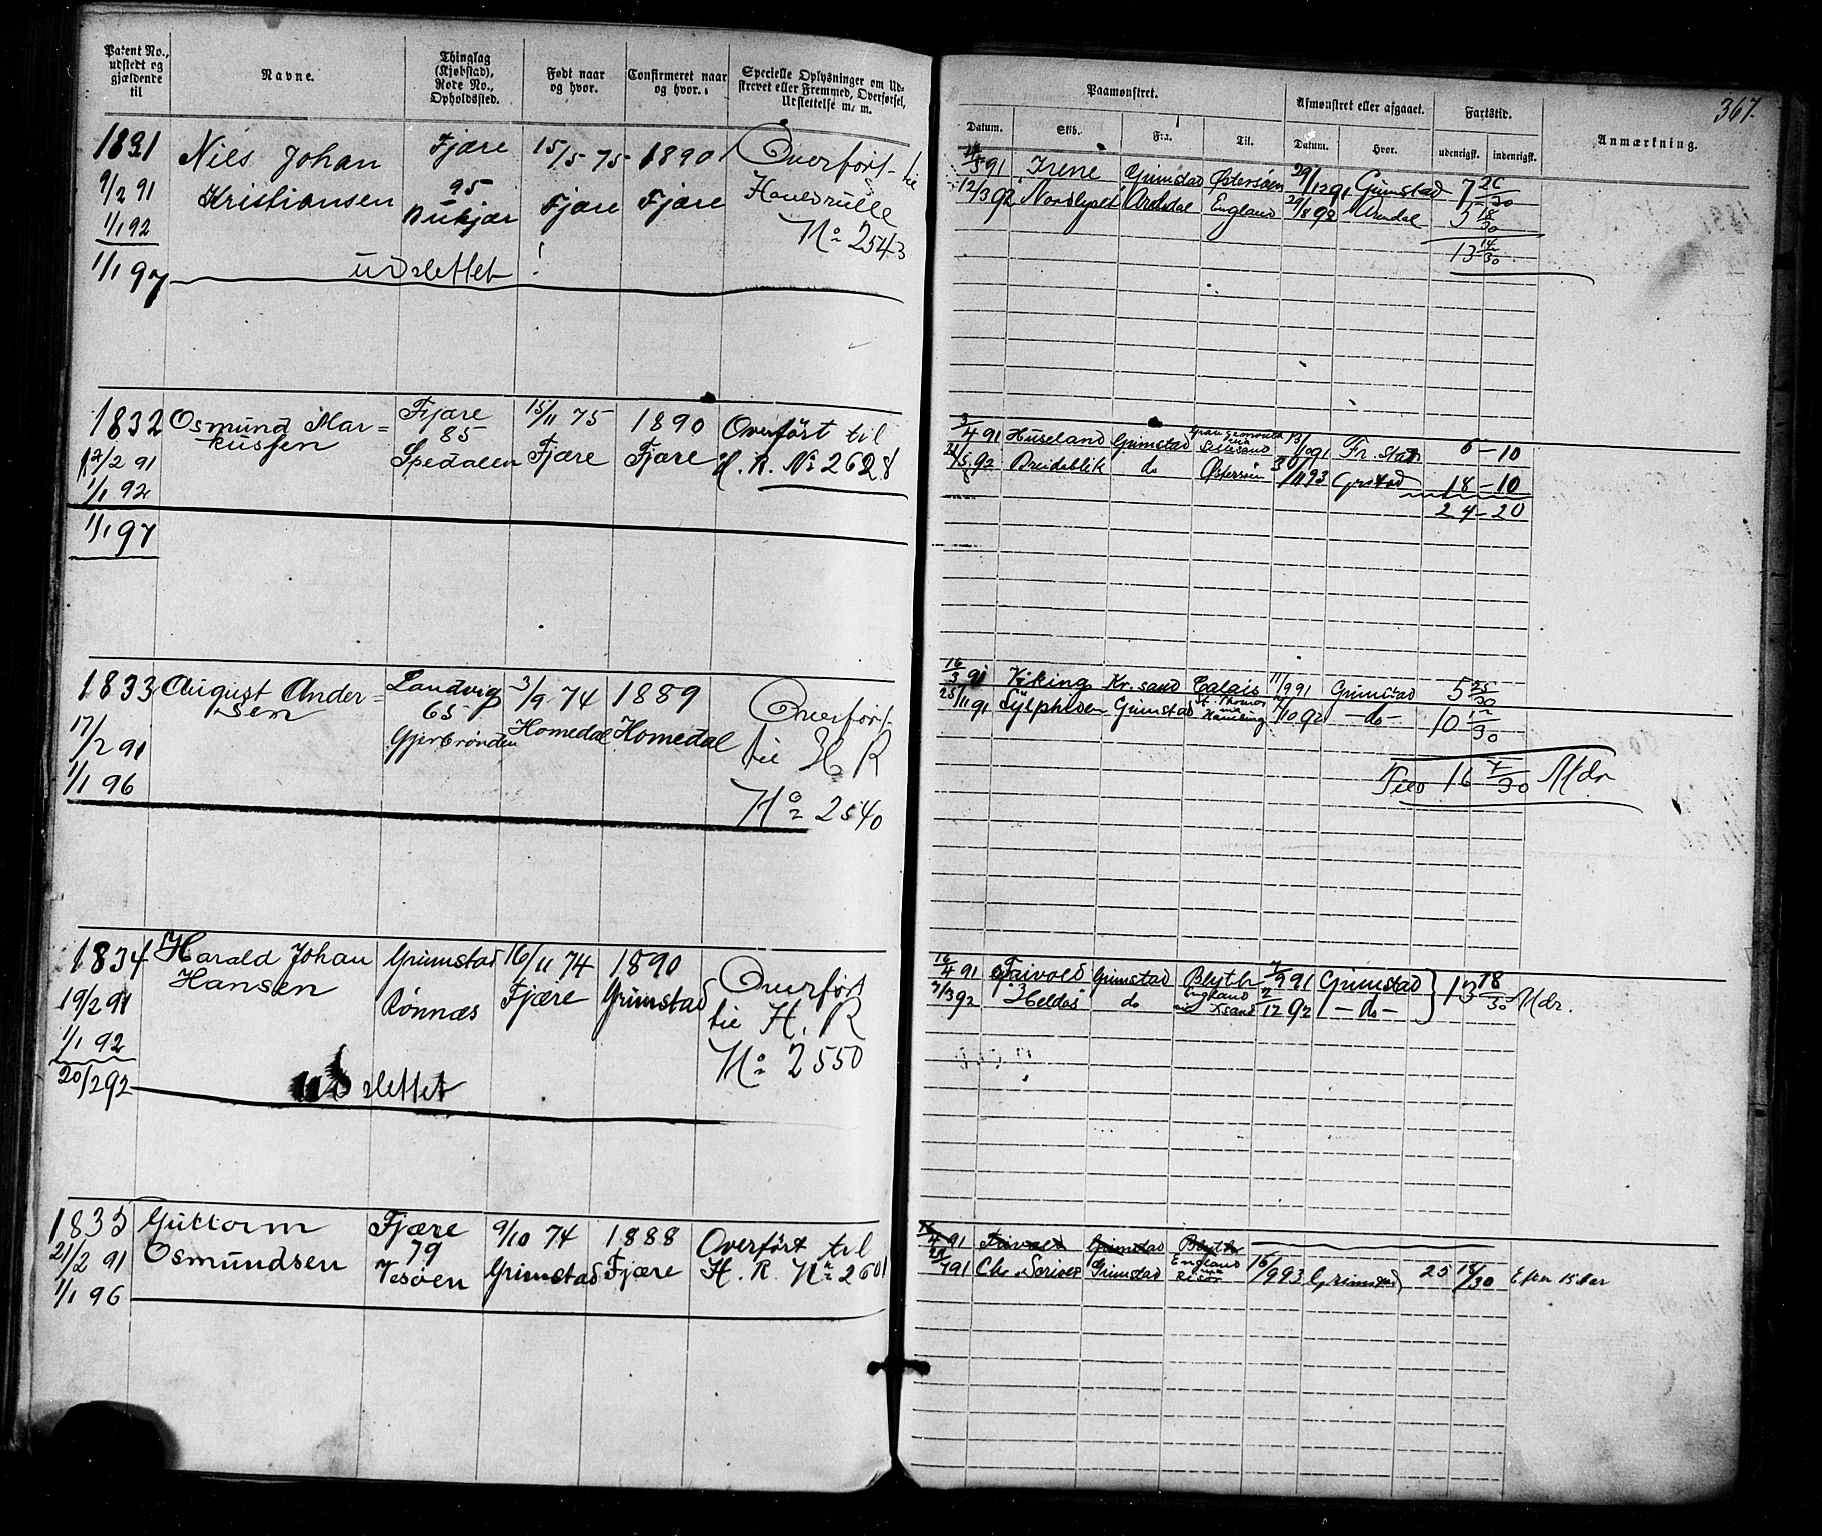 367.
Patent No., udstedt og gjældende til
Navne.
Thinglag (Kjøbstad), Rode No., Opholdssted.
Født naar og hvor.
Confirmeret naar og hvor.
Specielle Oplysninger om Udskrevet eller Fremmed, Overførsel, Udslettelse m. m.
Paamønstret.
Afmønstret eller afgaaet.
Fartstid.
Anmærkning.
Datum.
Skib.
Fra.
Til.
Datum.
Hvor.
udenrigsk.
indenrigsk.
1831 Niels Johan Fjære 15/5 75 1890 Overført til
9/2 91 Kristiansen 95 Fjære Fjære Hovedrulle
1/1 92 No 2543
1/1 97 udslettet !
91 Irene Grimstad Østersøen 29/12 91 Grimstad 7 26/30
12/3 92 Nordlyset Arendal England 29/8 92 Arendal 5 18/30
13 14/30
1832 Osmund Mar= Fjære 15/11 75 1890 Overført til
kussen 85
12/2 91 Spedalen Fjære Fjære H. R. No 2628
1/1 92
1/1 97
3/4 91 Huseland Grimstad 91 Fr.stad 6 - 10
92 Breidablik do Østersøen 30/11 93 Grstad 18 - 10
24 - 20
1833 August Ander= Landvig 3/9 74 1889 Overført
sen 65
17/2 91 Gjerbrønden Homedal Homedal til H R
1/1 96 No 2540
16/3 91 Viking Kr.sand Calais 11/9 91 Grimstad 5 25/30
25/11 91 Sylphiden Grimstad St. Thomas 92 - do - 10
16 Mdr
1834 Harald Johan Grimstad 16/11 74 1890 Overført
Hansen
19/2 91 Rønnæs Fjære Grimstad til H. R
1/1 92 No 2550
20/2 92 udslettet
16/4 91 Faivold Grimstad Blyth 91 Grimstad 13 18/30 Mdr.
7/3 92 "Heldos" do England 2/12 92 - do -
1835 Guttorm Fjære 9/10 74 1888 Overført til
21/2 91 Osmundsen 79 Grimstad Fjære H. R. No 2601
1/1 96 Vesøen
16/4 91 Faivold Grimstad Blyth
91 Chr. Scriver Grimstad England 16/9 93 Grimstad 25 18/30 Efter 15 Aar